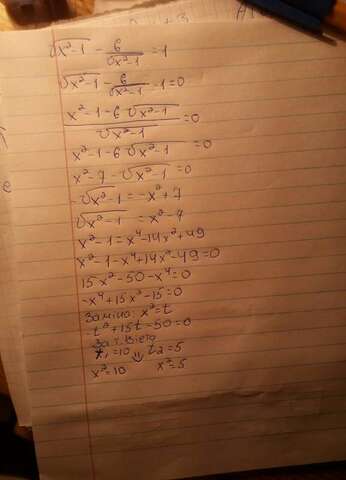 √x²-1 - 6/√x²-1 = 1
√x²-1 - 6/√x²-1 - 1 = 0
x²-1-6√x²-1 / √x²-1 = 0
x²-1-6√x²-1 = 0
x²-7-√x²-1 = 0
-√x²-1 = -x²+7
√x²-1 = x²-7
x²-1 = x⁴-14x²+49
x²-1-x⁴+14x²-49=0
15x²-50-x⁴=0
-x⁴+15x²-15=0
Заміна: x²=t
-t²+15t-50=0
За т. Вієта
t₁=10 t2=5
x²=10 x²=5